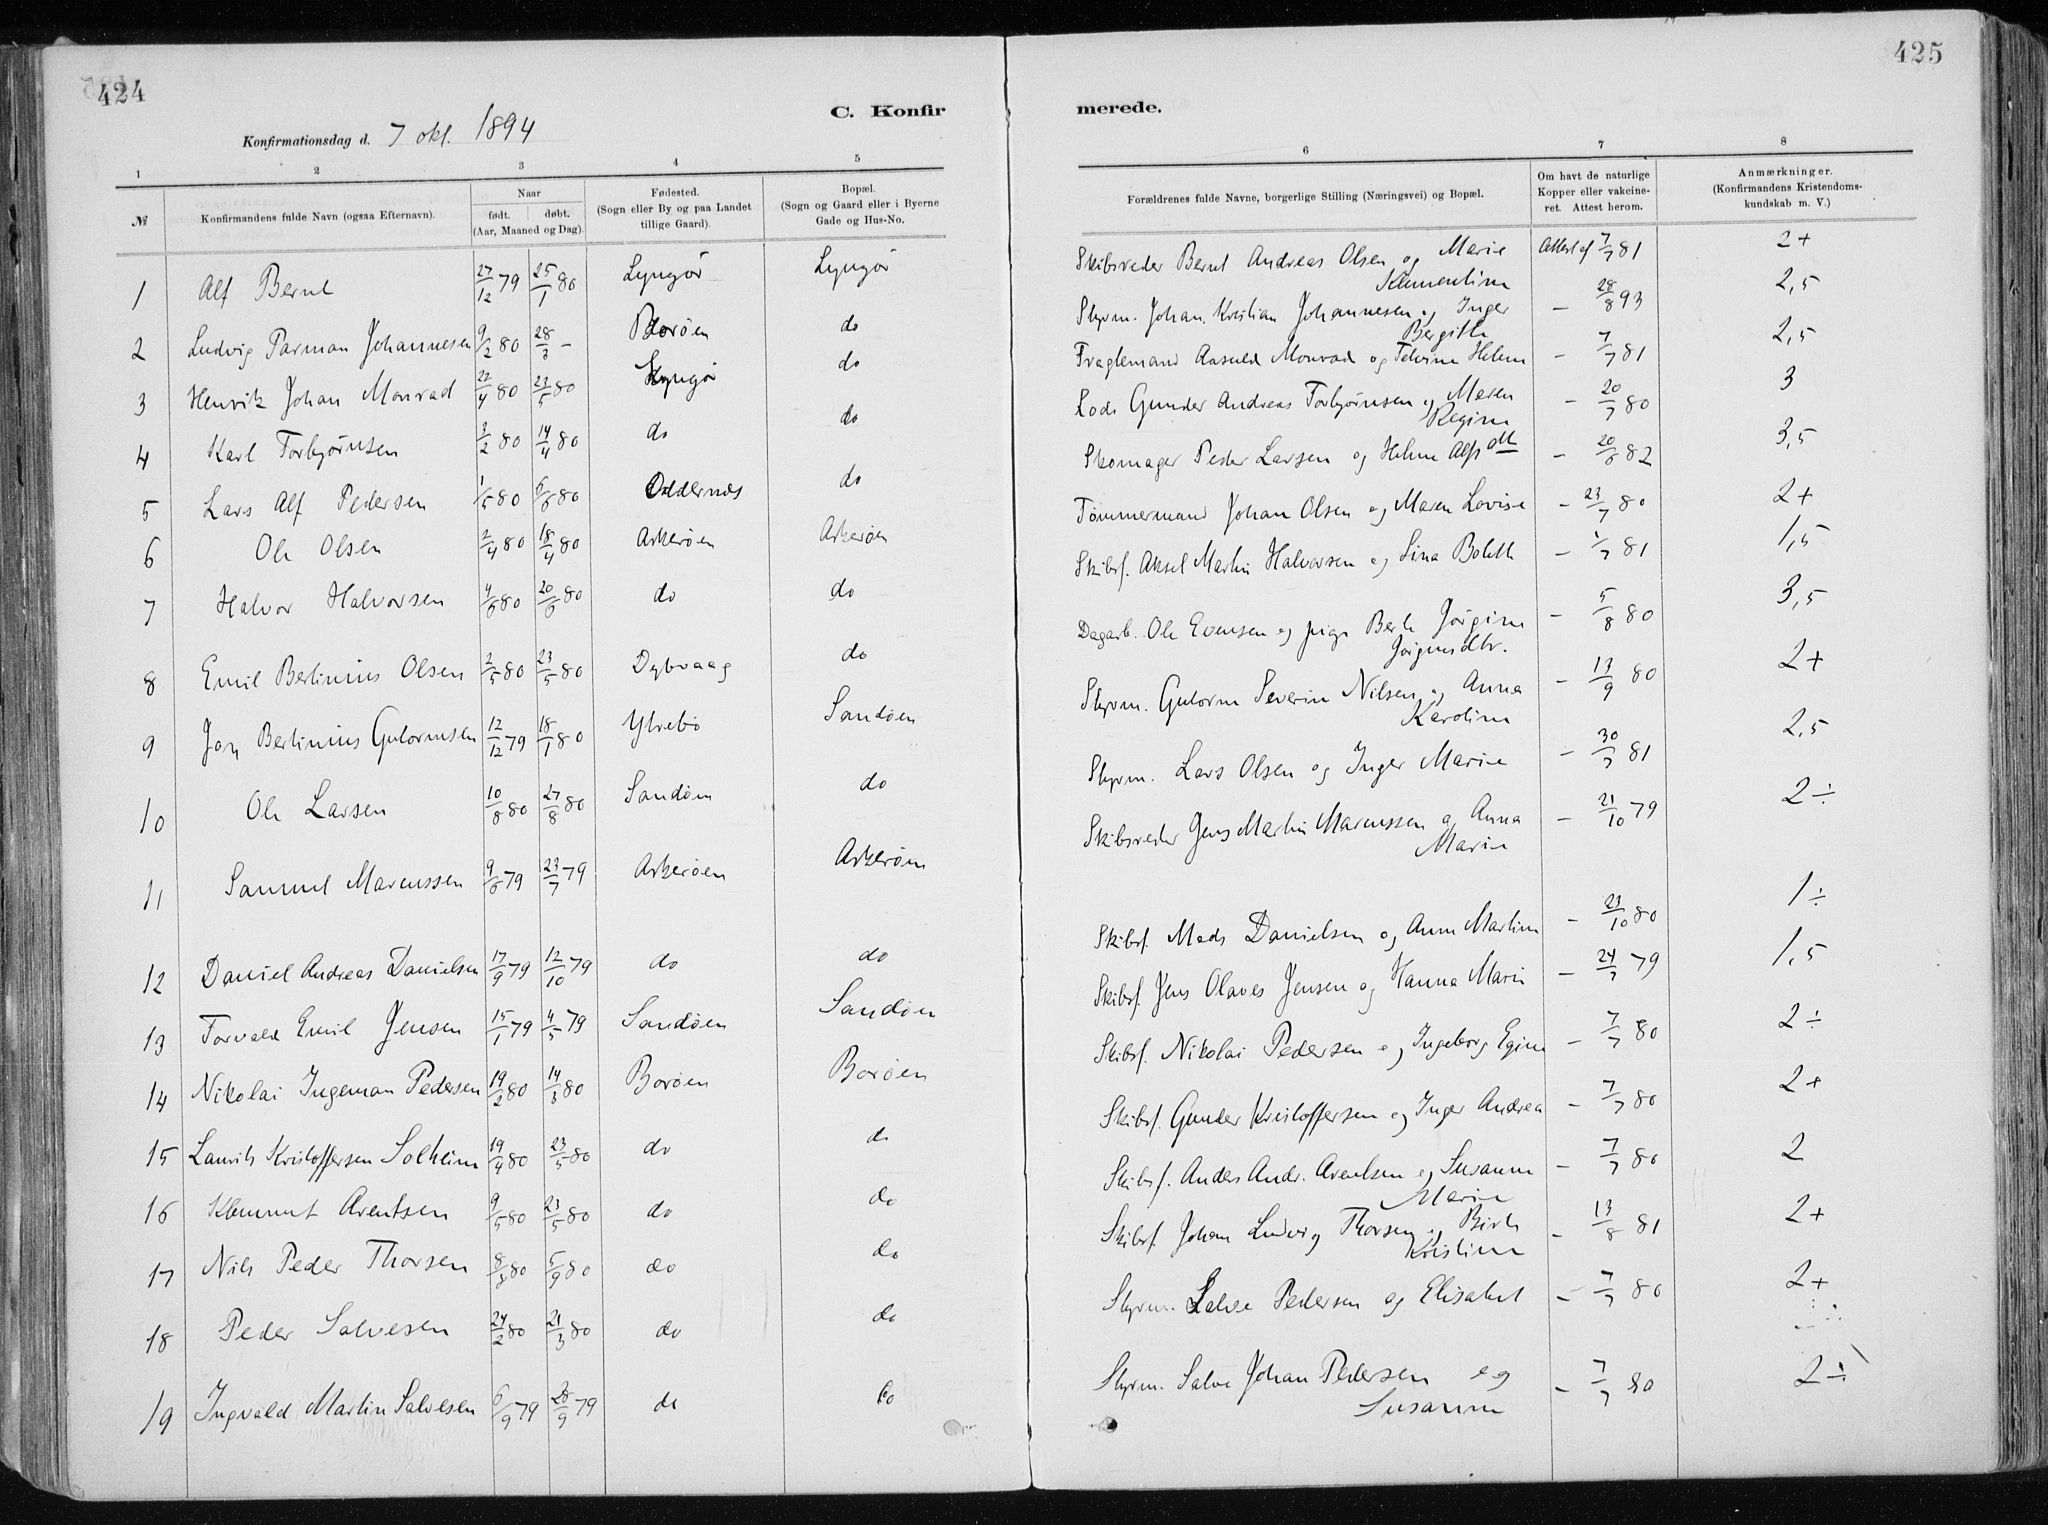 424
C. Konfir
Konfirmationsdag d. 7 okt. 1894
1 2 3 4 5
№
Konfirmandens fulde Navn (ogsaa Efternavn).
Naar
født. døbt.
(Aar, Maaned og Dag).
Fødested.
(Sogn eller By og paa Landet
tillige Gaard).
Bopæl.
(Sogn og Gaard eller i Byerne
Gade og Hus-No.
1 Alf Bernt 27/12 79 25/1 80 Lyngør Lyngør
2 Ludvig Parman Johannesen 9/2 80 28/3 - Borøen do
3 Henrik Johan Monrad 22/4 80 23/5 80 Lyngør do
4 Karl Torbjørnsen 3/2 80 14/4 80 do do
5 Lars Alf Pedersen 1/5 80 6/6 80 Oddernes do
6 Ole Olsen 2/4 80 18/4 80 Askerøen Askerøen
7 Halvor Halvorsen 4/6 80 20/6 80 do do
8 Emil Bertinius Olsen 2/5 80 23/5 80 Dybvaag do
9 Jan Bertinius Gutormsen 12/12 79 18/1 80 Ytrebø Sandøen
10 Ole Larsen 10/8 80 27/8 80 Sandøen do
11 Samuel Marcussen 9/6 79 23/7 79 Askerøen Askerøen
12 Daniel Andreas Danielsen 17/9 79 12/10 79 do do
13 Torvald Emil Jensen 15/1 79 4/5 79 Sandøen Sandøen
14 Nikolai Ingeman Pedersen 19/2 80 14/3 80 Borøen Borøen
15 Laurits Kristoffersen Solheim 19/4 80 23/5 80 do do
16 Klemmet Arentsen 9/5 80 23/5 80 do do
17 Nils Peder Thorsen 8/8 80 5/9 80 do do
18 Peder Salvesen 24/2 80 21/3 80 do do
19 Ingvald Martin Salvesen 6/9 79 28/9 79 do do
425
merede.
6 7 8
Forældrenes fulde Navne, borgerlige Stilling (Næringsvei) og Bopæl.
Om havt de naturlige
Kopper eller vakcine-
ret. Attest herom.
Anmærkninger.
(Konfirmandens Kristendoms-
kundskab m. V.)
Skibsreder Bernt Andreas Olsen og Marie Attest af 7/7 81 2+
Klementine
Styrm. Johan Kristian Johannesen og Inger - 28/8 93 2,5
Bergitte
Aasuld Monrad og Helene - 7/7 81 2,5
Lods Gunder Andreas Torbjørnsen og Maren - 20/7 80 3
Regine
Skomager Peder Larsen og Helene Alfsdtt - 20/6 82 3,5
Tømmermand Johan Olsen og Maren Lovise - 23/7 80 2+
Skibsf. Aksel Martin Halvorsen og Lina Bolette - 1/7 81 1,5
Dagarb. Ole Evensen og pige Berte Jørgine - 5/8 80 3,5
Jørgensdtr.
Styrm. Gutorm Severin Nilsen og Anna - 13/9 80 2+
Karoline
Styrm. Lars Olsen og Inger Marie - 30/7 81 2,5
Skibsreder Jens Martin Marcussen og Anna - 21/10 79 2÷
Marie
Skibsf. Mads Danielsen og Anne Martine - 23/10 80 1÷
Skibsf. Jens Olaves Jensen og Hanna Marie - 24/7 79 1,5
Skibsf. Nikolai Pedersen og Ingeborg Egine - 7/7 80 2÷
Skibsf. Gunder Kristoffersen og Inger Andrea - 7/7 80 2+
Skibsf. Anders Andr. Arentsen og Susanne - 7/7 80 2
Marie
Skibsf. Johan Ludvig Thorsen og Birte - 13/8 81 2+
Kristine
Styrm. Salve Pedersen og Elisabet - 7/7 80 2+
Styrm. Salve Johan Pedersen og - 7/7 80 2÷
Susanne